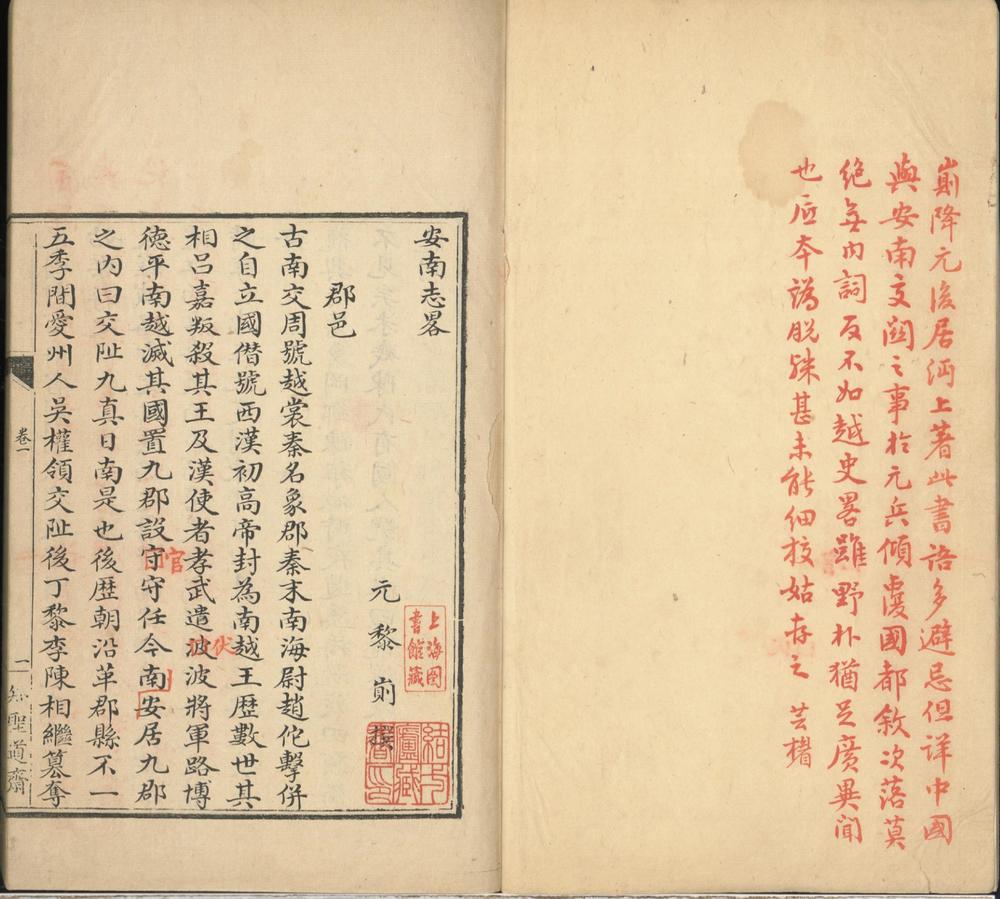 崱降元後居沔上著此書語多避忌但詳中國
與安南交關之事於元兵傾覆國都敘次落莫
絕無內詞反不如越史畧雖野朴猶足廣異聞
也底本譌脫殊甚未能細挍姑存之 芸楣
安南志畧
元 黎 崱 撰
上海图
書館藏
結弌
廬藏
書印
郡邑
古南交周號越裳秦名象郡秦末南海尉趙佗擊併
之自立國僭號西漢初高帝封為南越王歷數世其
相呂嘉叛殺其王及漢使者孝武遣波波將軍路博
伏
德平南越滅其國置九郡設守守任今南安居九郡
官
之內曰交阯九真日南是也後歷朝沿革郡縣不一
五季間愛州人吳權領交阯後丁黎李陳相繼簒奪
卷一
一
知聖道齋